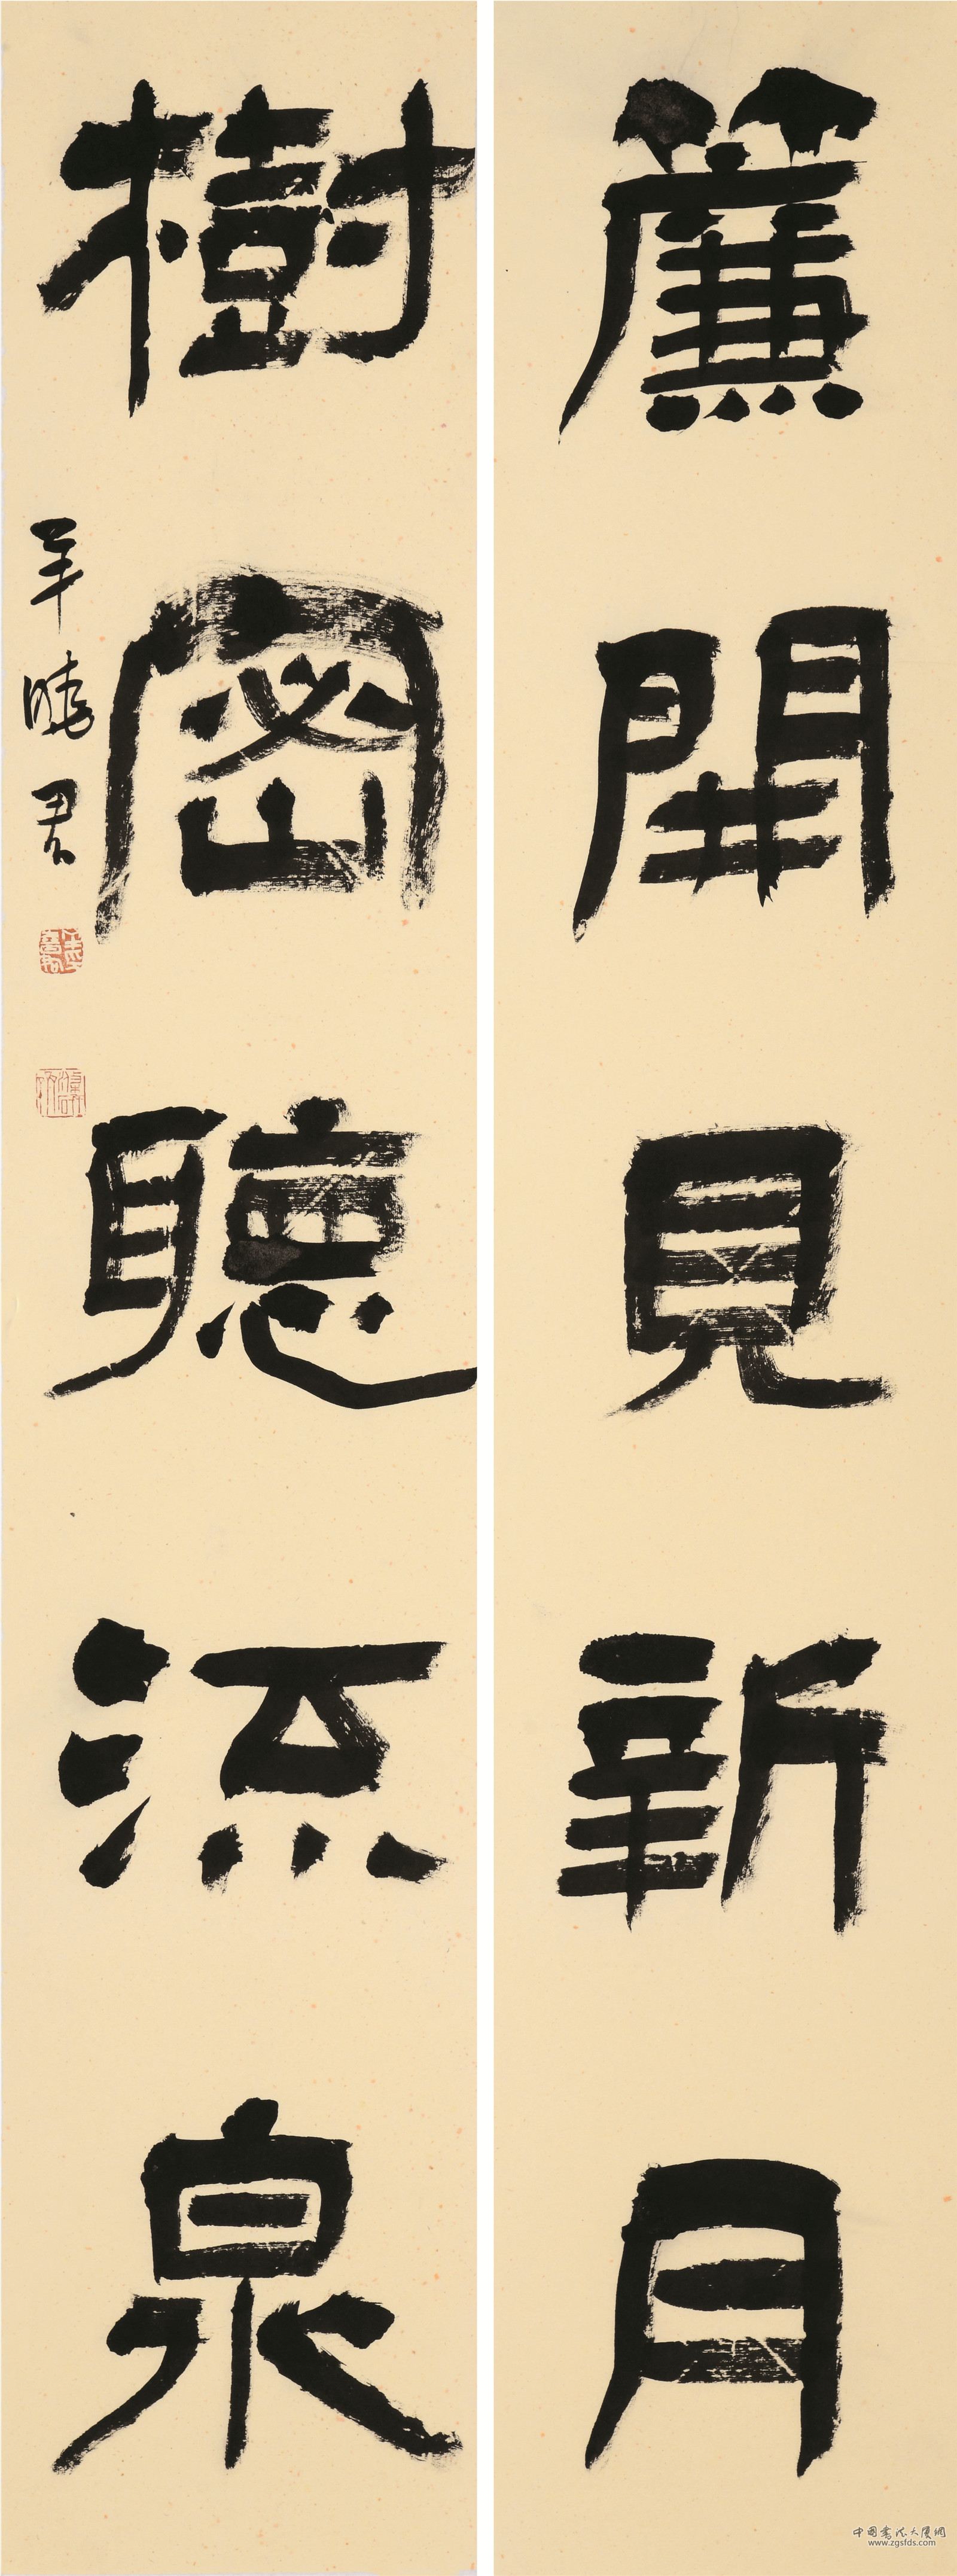 簾開見新月
樹密聽流泉
羊曉君
中国書法大廈網
www.zgsfds.com